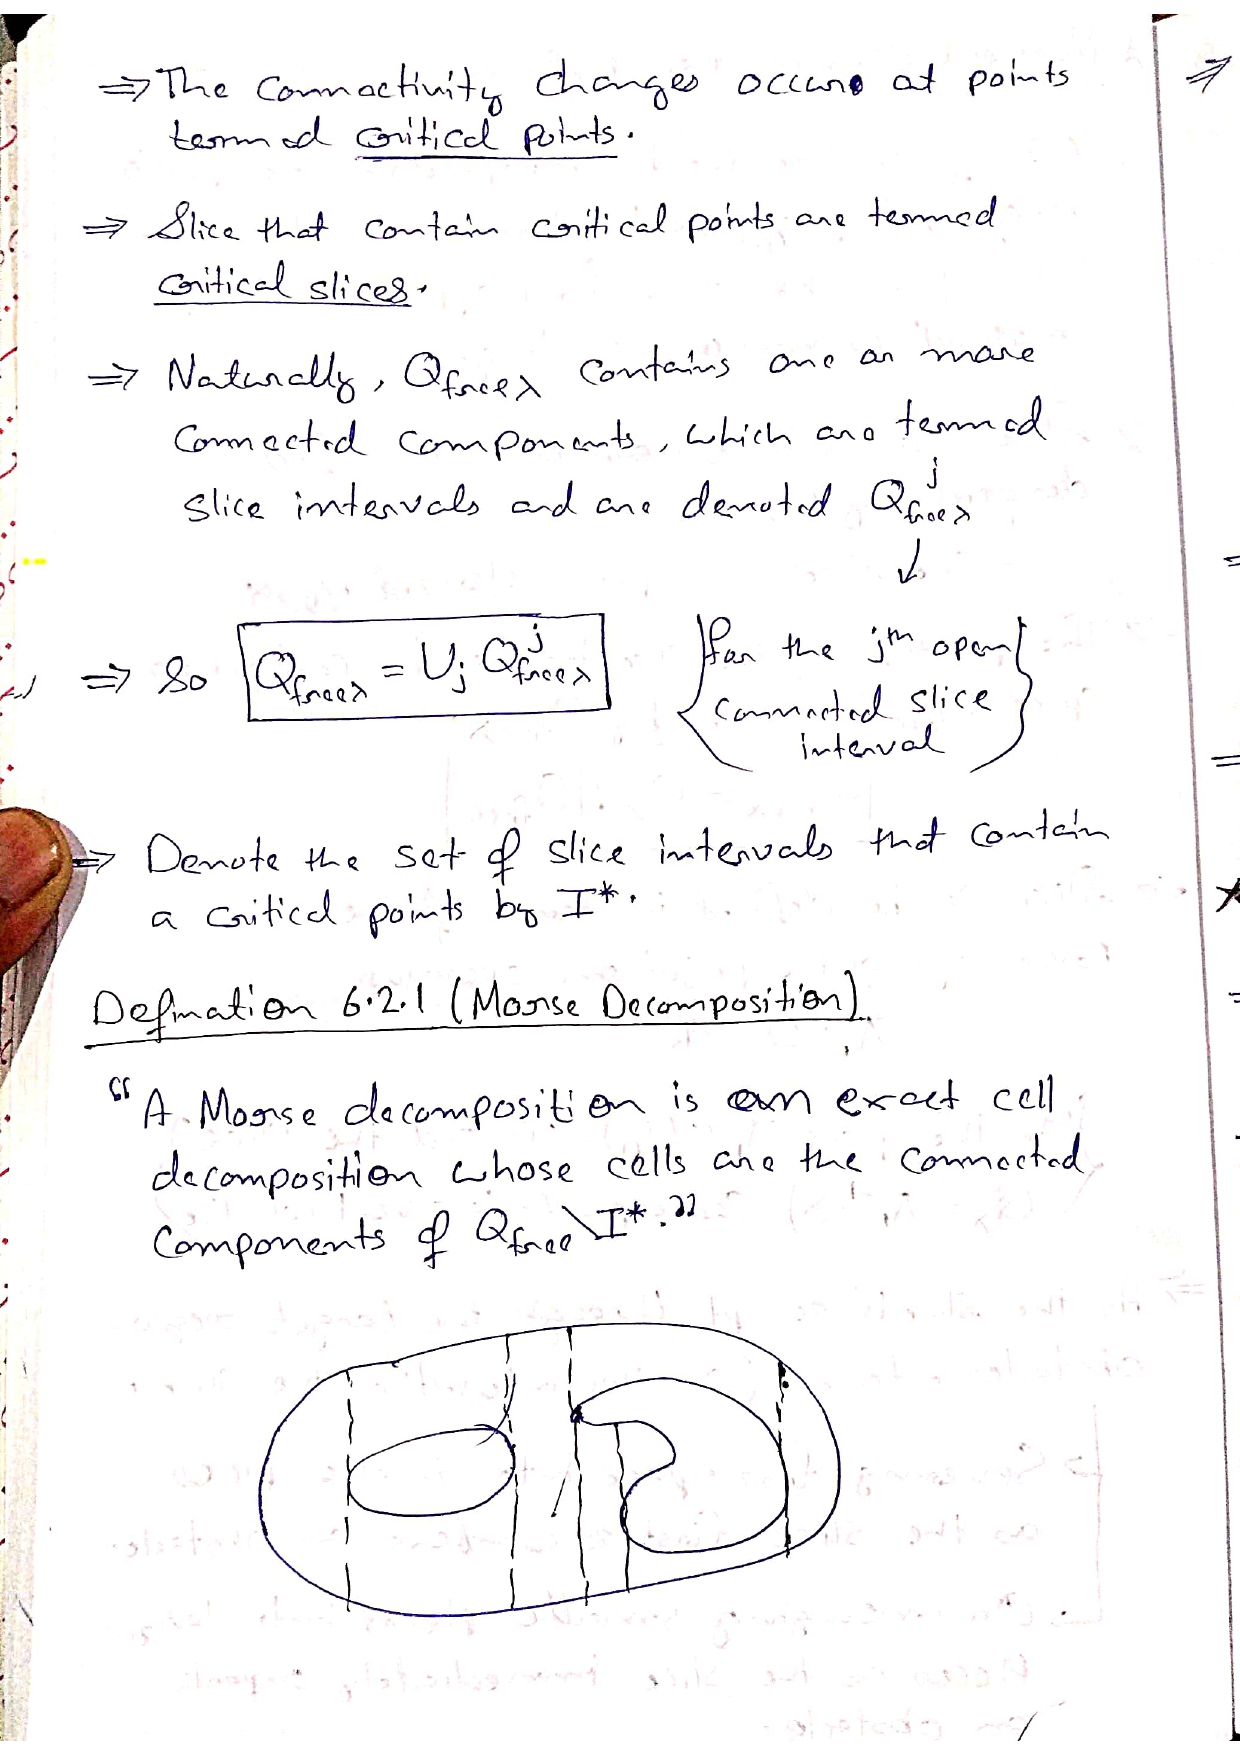 ⇒ The connectivity changes occurs at points
termed critical points.
⇒ Slice that contain critical points are termed
critical slices.
⇒ Naturally, Qfreeλ contains one or more
connected components, which are termed
slice intervals and are denoted Q^j_freeλ
↓
⇒ So Qfreeλ = ∪j Q^j_freeλ
{for the jth open
connected slice
interval}
⇒ Denote the set of slice intervals that contain
a critical points by I*.
Defination 6.2.1 (Morse Decomposition)
"A Morse decomposition is an exact cell
decomposition whose cells are the connected
components of Qfree\I*."